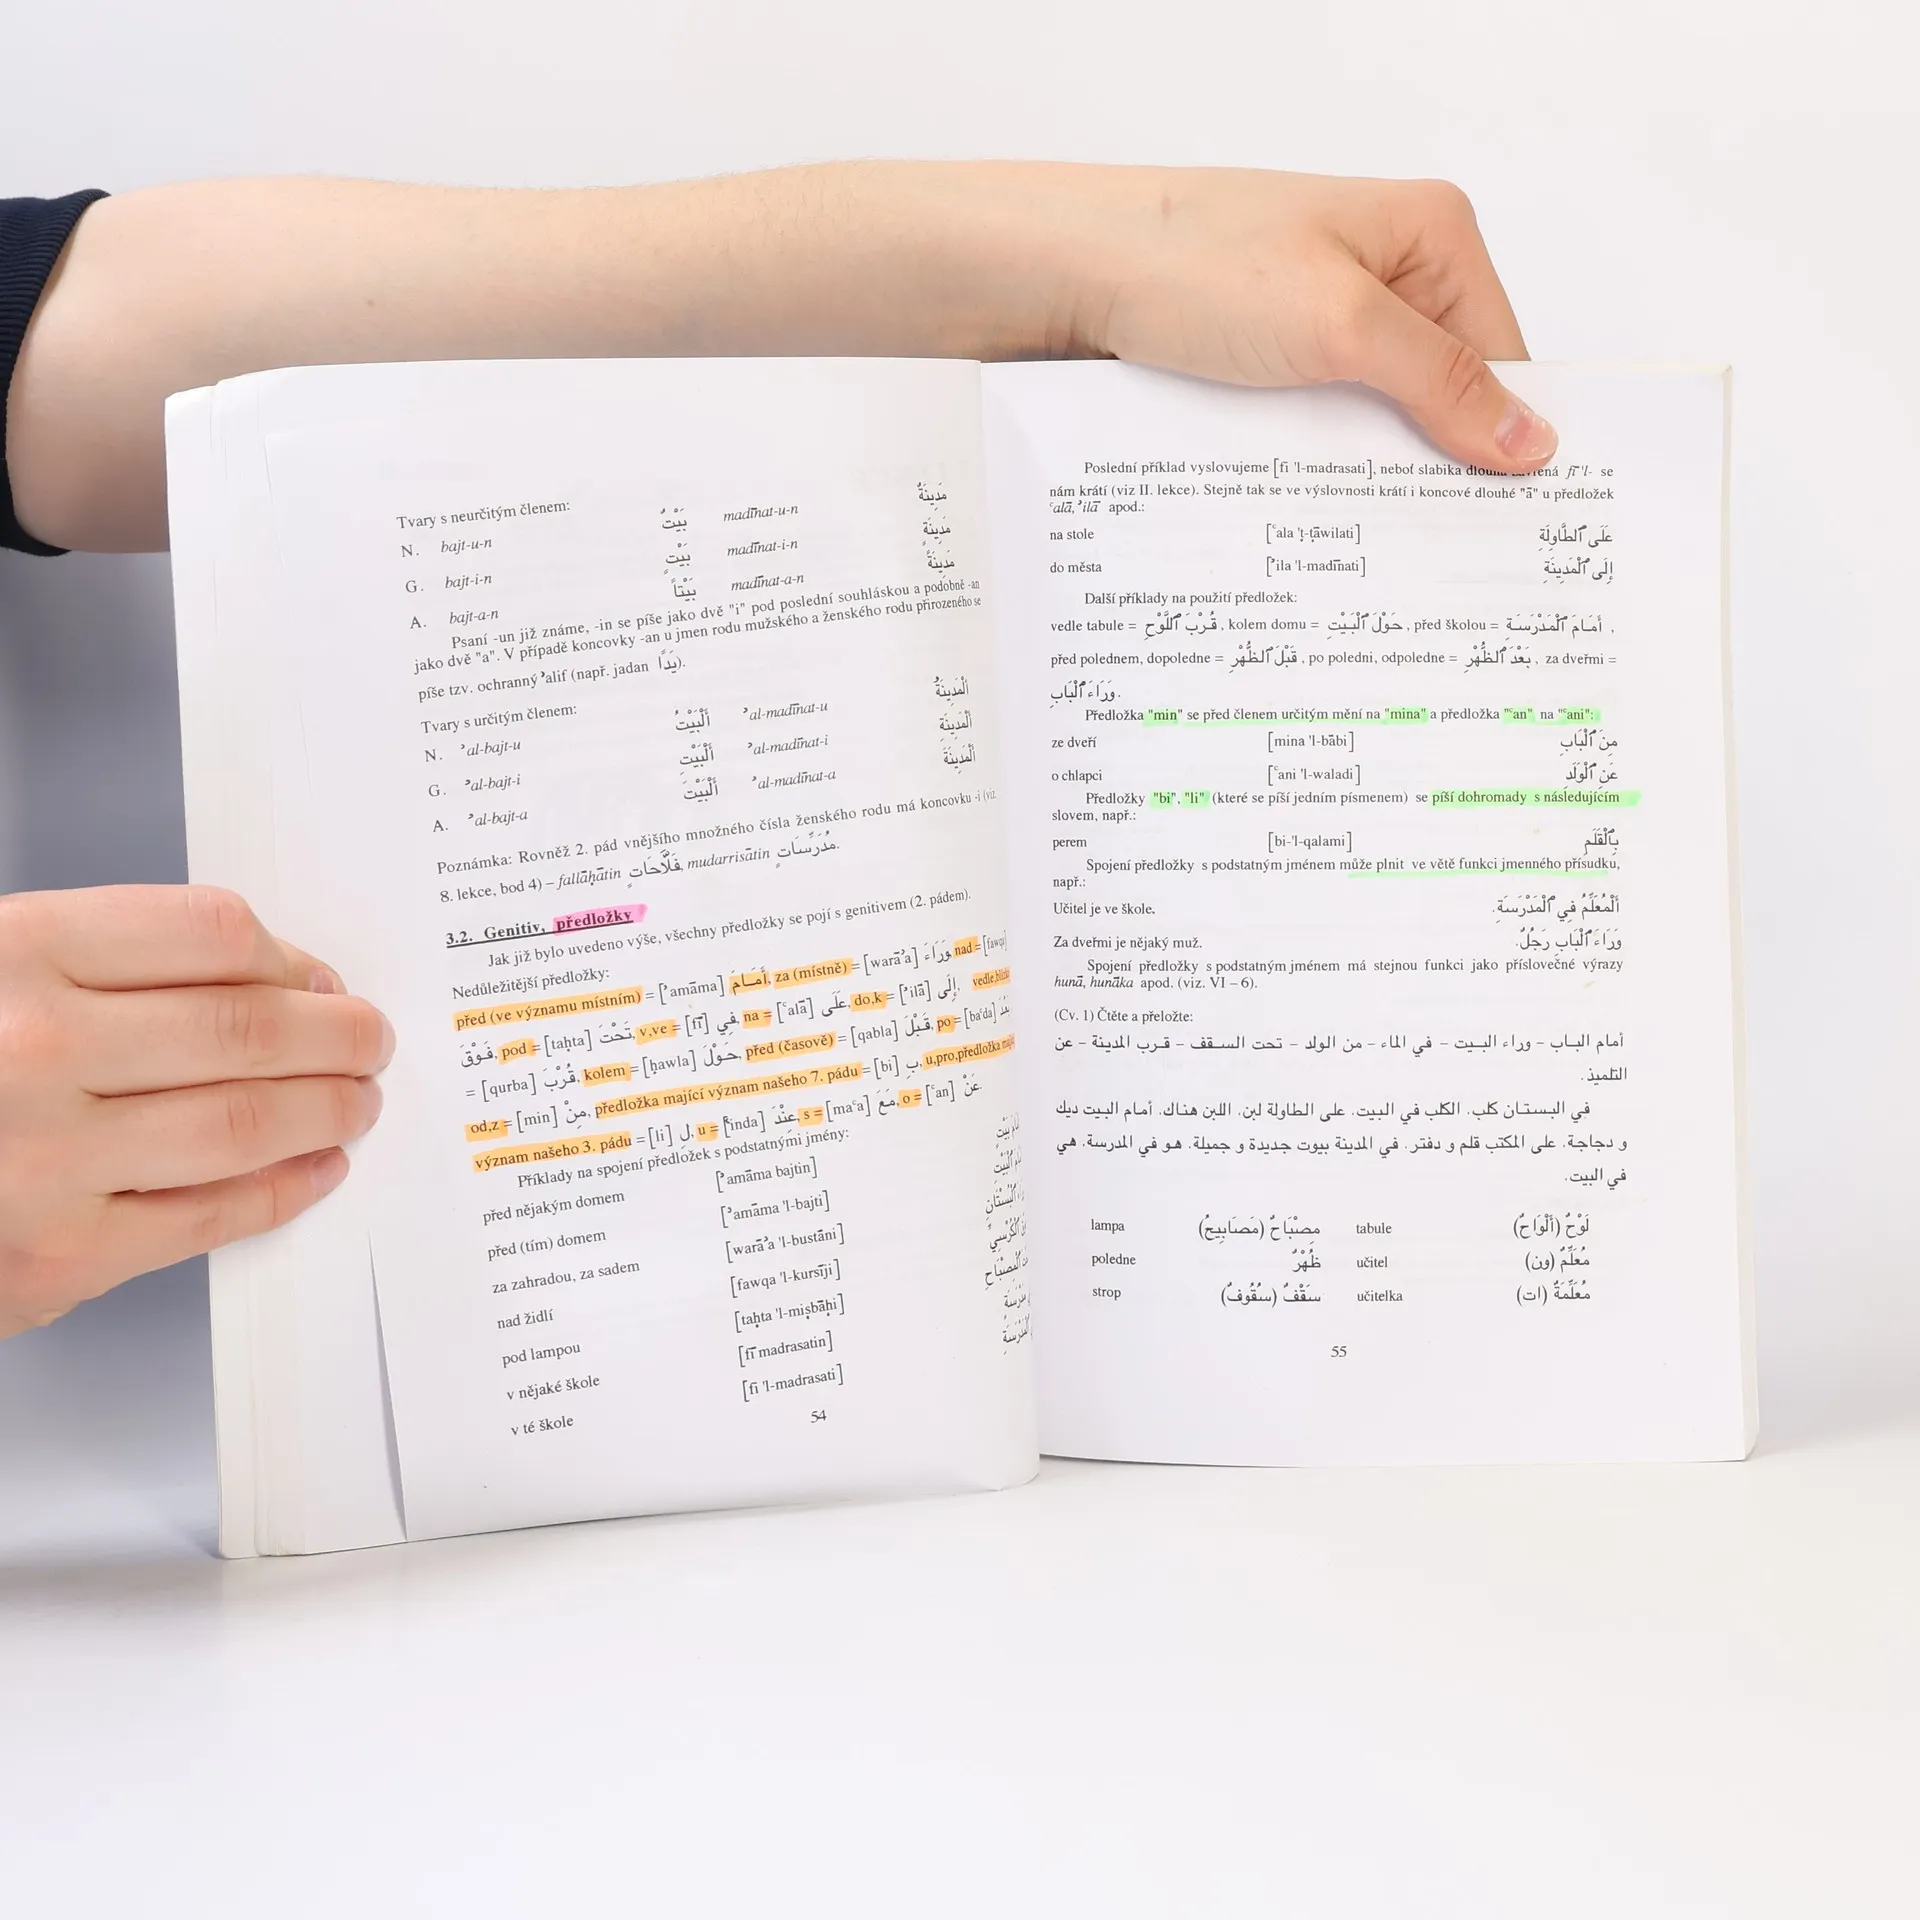 Tvary s neurčitým členem:
N. bajt-u-n بَيْتٌ madīnat-u-n مَدِينَةٌ
G. bajt-i-n بَيْتٍ madīnat-i-n مَدِينَةٍ
A. bajt-a-n بَيْتاً madīnat-a-n مَدِينَةً
Psaní -un již známe, -in se píše jako dvě "i" pod poslední souhláskou a podobně -an
jako dvě "a". V případě koncovky -an u jmen rodu mužského a ženského rodu přirozeného se
píše tzv. ochranný ʾalif (např. jadan يَداً).
Tvary s určitým členem:
N. ʾal-bajt-u أَلْبَيْتُ ʾal-madīnat-u أَلْمَدِينَةُ
G. ʾal-bajt-i أَلْبَيْتِ ʾal-madīnat-i أَلْمَدِينَةِ
A. ʾal-bajt-a أَلْبَيْتَ ʾal-madīnat-a أَلْمَدِينَةَ
Poznámka: Rovněž 2. pád vnějšího množného čísla ženského rodu má koncovku -i (viz
8. lekce, bod 4) – fallāḥātin فَلَّاحَاتٍ, mudarrisātin مُدَرِّسَاتٍ.
3.2. Genitiv, předložky
Jak již bylo uvedeno výše, všechny předložky se pojí s genitivem (2. pádem).
Nedůležitější předložky:
před (ve významu místním) = [ʾamāma] أَمَامَ, za (místně) = [warāʾa] وَرَاءَ, nad = [fawqa]
فَوْقَ, pod = [taḥta] تَحْتَ, v,ve = [fī] فِي, na = [ʿalā] عَلَى, do,k = [ʾilā] إِلَى, vedle,
= [qurba] قُرْبَ, kolem = [ḥawla] حَوْلَ, před (časově) = [qabla] قَبْلَ, po = [baʿda] بَعْدَ
od,z = [min] مِنْ, předložka mající význam našeho 7. pádu = [bi] بِ, u,pro,předložka
význam našeho 3. pádu = [li] لِ, u = [ʿinda] عِنْدَ, s = [maʿa] مَعَ, o = [ʿan] عَنْ.
Příklady na spojení předložek s podstatnými jmény:
před nějakým domem [ʾamāma bajtin]
před (tím) domem [ʾamāma 'l-bajti]
za zahradou, za sadem [warāʾa 'l-bustāni]
nad židlí [fawqa 'l-kursīji]
pod lampou [taḥta 'l-miṣbāḥi]
v nějaké škole [fī madrasatin]
v té škole [fi 'l-madrasati]
54
Poslední příklad vyslovujeme [fi 'l-madrasati], neboť slabika fī 'l- se
nám krátí (viz II. lekce). Stejně tak se ve výslovnosti krátí i koncové dlouhé "ā" u předložek
ʿalā, ʾilā apod.:
na stole [ʿala 'ṭ-ṭāwilati] عَلَى ٱلطَّاوِلَةِ
do města [ʾila 'l-madīnati] إِلَى ٱلْمَدِينَةِ
Další příklady na použití předložek:
vedle tabule = قُرْبَ ٱللَّوْحِ, kolem domu = حَوْلَ ٱلْبَيْتِ, před školou = أَمَامَ ٱلْمَدْرَسَةِ,
před polednem, dopoledne = قَبْلَ ٱلظُّهْرِ, po poledni, odpoledne = بَعْدَ ٱلظُّهْرِ, za dveřmi =
وَرَاءَ ٱلْبَابِ.
Předložka "min" se před členem určitým mění na "mina" a předložka "ʿan" na "ʿani":
ze dveří [mina 'l-bābi] مِنَ ٱلْبَابِ
o chlapci [ʿani 'l-waladi] عَنِ ٱلْوَلَدِ
Předložky "bi", "li" (které se píší jedním písmenem) se píší dohromady s následujícím
slovem, např.:
perem [bi-'l-qalami] بِٱلْقَلَمِ
Spojení předložky s podstatným jménem může plnit ve větě funkci jmenného přísudku,
např.:
Učitel je ve škole. أَلْمُعَلِّمُ فِي ٱلْمَدْرَسَةِ.
Za dveřmi je nějaký muž. وَرَاءَ ٱلْبَابِ رَجُلٌ.
Spojení předložky s podstatným jménem má stejnou funkci jako příslovečné výrazy
hunā, hunāka apod. (viz. VI – 6).
(Cv. 1) Čtěte a přeložte:
أمام الباب – وراء البيت – في الماء – من الولد – تحت السقف – قرب المدينة – عن
التلميذ.
في البستان كلب. الكلب في البيت. على الطاولة لبن. اللبن هناك. أمام البيت ديك
و دجاجة. على المكتب قلم و دفتر. في المدينة بيوت جديدة و جميلة. هو في المدرسة. هي
في البيت.
lampa مِصْبَاحٌ (مَصَابِيحُ) tabule لَوْحٌ (أَلْوَاحٌ)
poledne ظُهْرٌ učitel مُعَلِّمٌ (ون)
strop سَقْفٌ (سُقُوفٌ) učitelka مُعَلِّمَةٌ (ات)
55